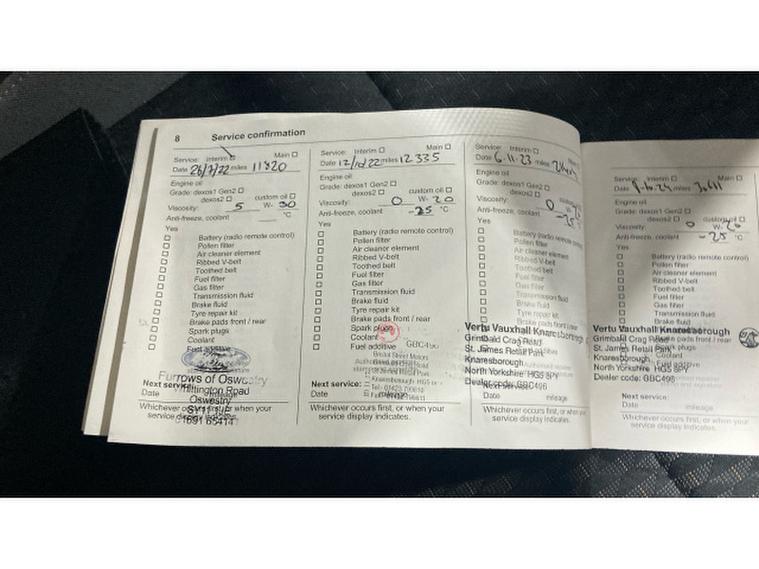 8 Service confirmation
Service: Interim Main
Date 26/7/22 miles 11820
Engine oil
Grade: dexos1 Gen2
dexos2 custom oil
Viscosity: 5 W- 30
Anti-freeze, coolant °C
Yes
Battery (radio remote control)
Pollen filter
Air cleaner element
Ribbed V-belt
Toothed belt
Fuel filter
Gas filter
Transmission fluid
Brake fluid
Tyre repair kit
Brake pads front / rear
Spark plugs
Coolant
Fuel additive
Furrows of Oswestry
Whittington Road
Oswestry
Next service:
Date mileage
Whichever occurs first, or when your
service display indicates.
Service: Interim Main
Date 12/10/22 miles 12335
Engine oil
Grade: dexos1 Gen2
dexos2 custom oil
Viscosity: 0 W- 20
Anti-freeze, coolant -25 °C
Yes
Battery (radio remote control)
Pollen filter
Air cleaner element
Ribbed V-belt
Toothed belt
Fuel filter
Gas filter
Transmission fluid
Brake fluid
Tyre repair kit
Brake pads front / rear
Spark plugs
Coolant
Fuel additive
Bristol Street Motors
Knaresborough HG5
Next service:
Date mileage
Whichever occurs first, or when your
service display indicates.
Service: Interim Main
Date 6.11.23 miles
Engine oil
Grade: dexos1 Gen2
dexos2 custom oil
Viscosity: 0 W-
Anti-freeze, coolant -25
Yes
Battery (radio remote control)
Pollen filter
Air cleaner element
Ribbed V-belt
Toothed belt
Fuel filter
Gas filter
Transmission fluid
Brake fluid
Tyre repair kit
Brake pads front / rear
Vertu Vauxhall Knaresborough
Grimbald Crag Road
St. James Retail Park
Knaresborough
North Yorkshire HG5 8PY
Dealer code: GBC496
Next service:
Date mileage
Whichever occurs first, or when your
service display indicates.
Service: Interim Main
Date miles
Engine oil
Grade: dexos1 Gen2
dexos2 custom oil
Viscosity: 0 W- 20
Anti-freeze, coolant -25 °C
Yes
Battery (radio remote control)
Pollen filter
Air cleaner element
Ribbed V-belt
Toothed belt
Fuel filter
Gas filter
Transmission fluid
Brake fluid
Tyre repair kit
Vertu Vauxhall Knaresborough
Grimbald Crag Road
St. James Retail Park
Knaresborough
North Yorkshire HG5 8PY
Dealer code: GBC496
Spark plugs
Coolant
Fuel additive
Next service:
Date mileage
Whichever occurs first, or when your
service display indicates.